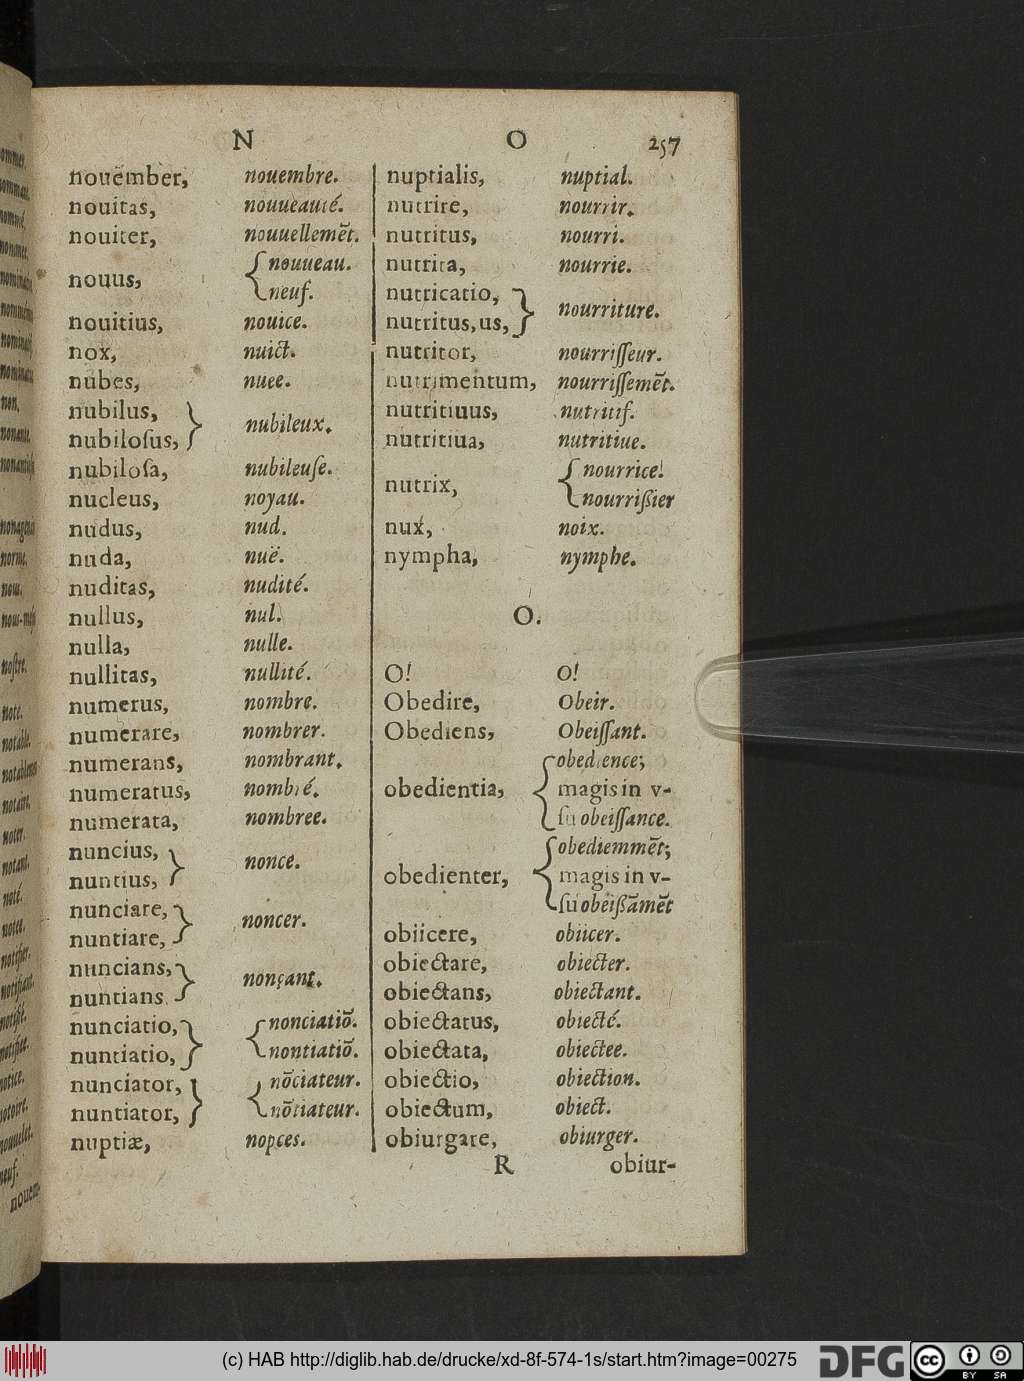 N O 257
nouēmber, nouembre.
nouitas, nouueauté.
nouiter, nouuellemēt.
nouus, { nouueau.
neuf.
nouitius, nouice.
nox, nuict.
nubes, nuee.
nubilus, }
nubiloſus, nubileux.
nubiloſa, nubileuſe.
nucleus, noyau.
nudus, nud.
nuda, nuë.
nuditas, nudité.
nullus, nul.
nulla, nulle.
nullitas, nullité.
numerus, nombre.
numerare, nombrer.
numerans, nombrant.
numeratus, nombré.
numerata, nombree.
nuncius, }
nuntius, nonce.
nunciare, }
nuntiare, noncer.
nuncians, }
nuntians nonçant.
nunciatio, } { nonciatiō.
nuntiatio, nontiatiō.
nunciator, } { nōciateur.
nuntiator, nōtiateur.
nuptiæ, nopces.
nuptialis, nuptial.
nutrire, nourrir.
nutritus, nourri.
nutrita, nourrie.
nutricatio, }
nutritus, us, nourriture.
nutritor, nourriſſeur.
nutrimentum, nourriſſemēt.
nutritiuus, nutritif.
nutritiua, nutritiue.
nutrix, { nourrice.
nourrißier
nux, noix.
nympha, nymphe.
O.
O! O!
Obedire, Obeir.
Obediens, Obeiſſant.
obedientia, { obedience;
magis in v-
ſu obeiſſance.
obedienter, { obediemmēt;
magis in v-
ſu obeißāmēt
obiicere, obiicer.
obiectare, obiecter.
obiectans, obiectant.
obiectatus, obiecté.
obiectata, obiectee.
obiectio, obiection.
obiectum, obiect.
obiurgare, obiurger.
R obiur-
(c) HAB http://diglib.hab.de/drucke/xd-8f-574-1s/start.htm?image=00275
DFG
cc BY SA